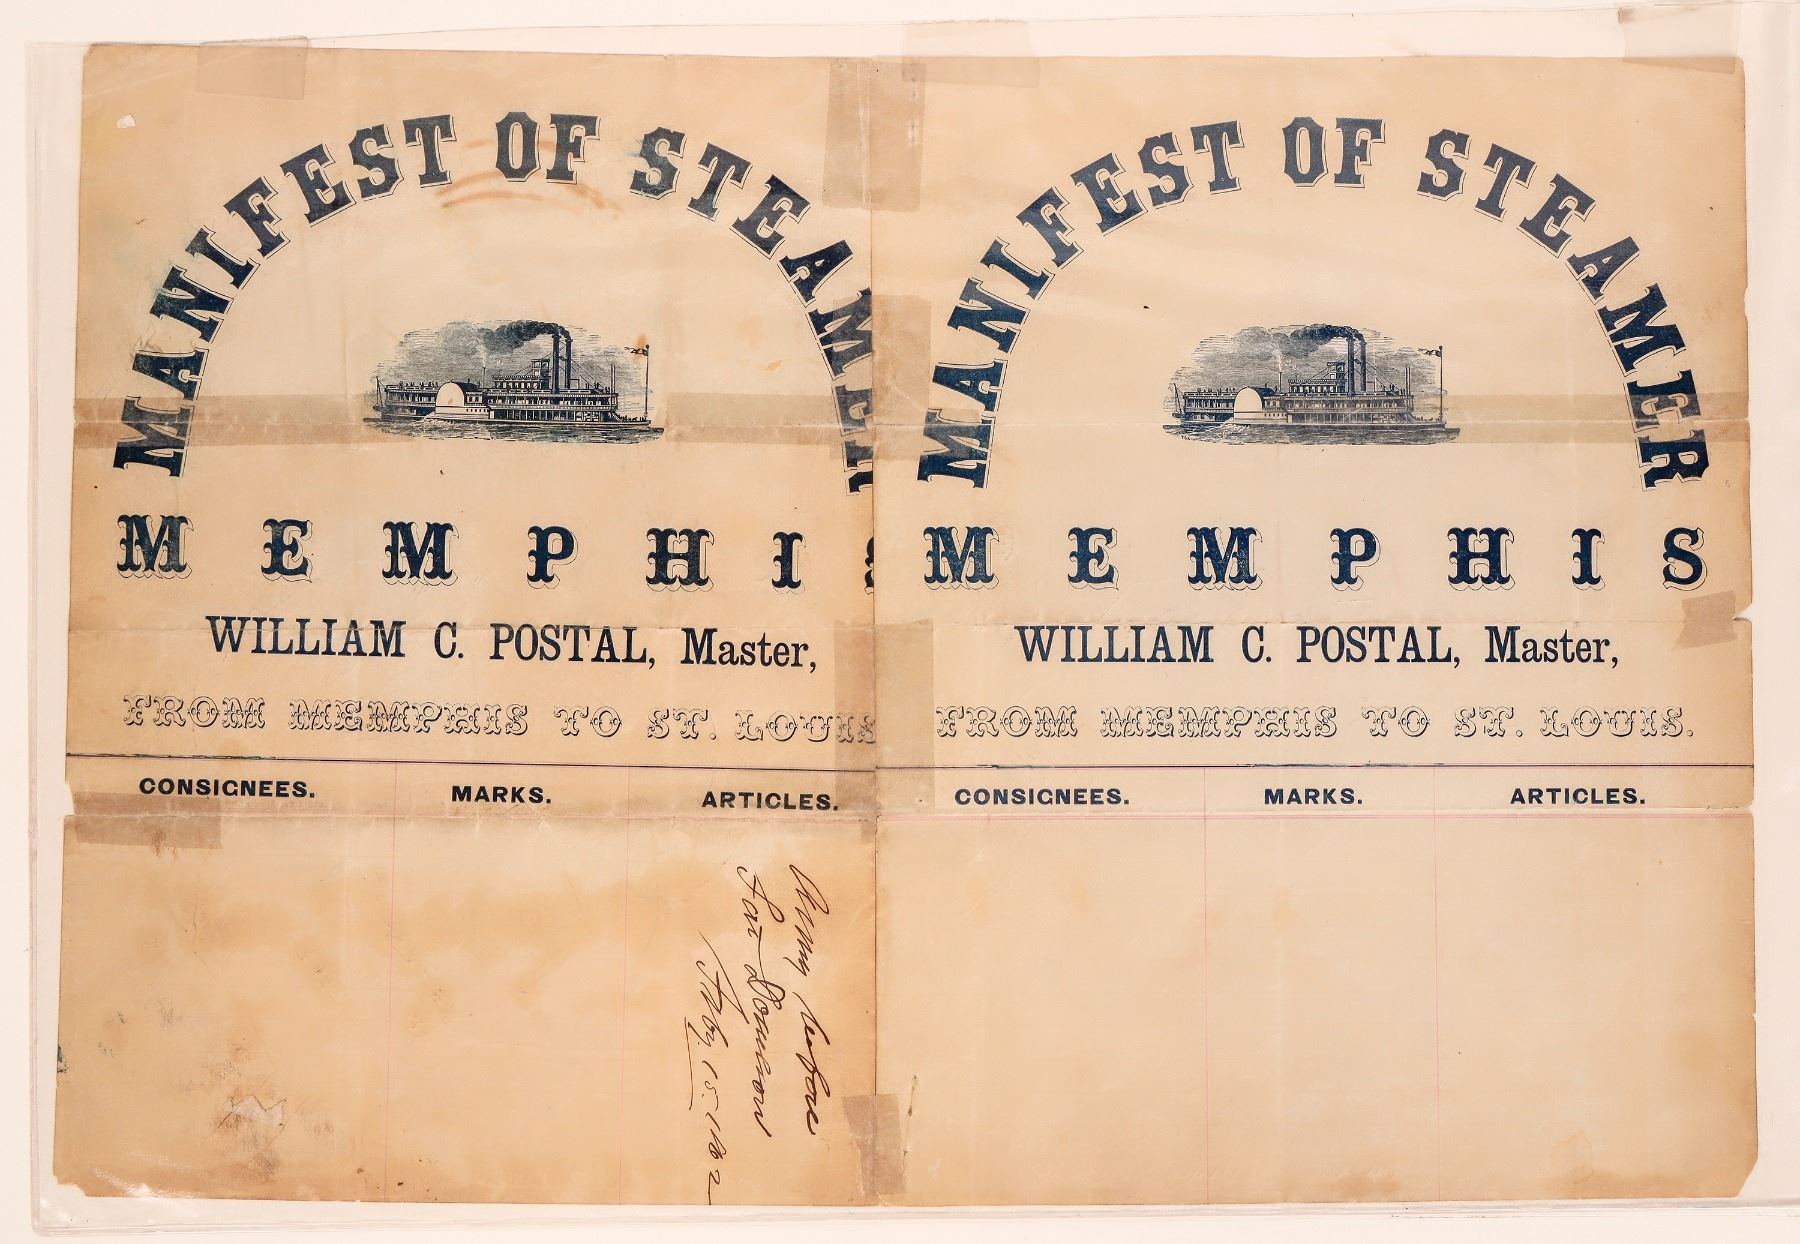 MANIFEST OF STEAMER
MEMPHIS
WILLIAM C. POSTAL, Master,
FROM MEMPHIS TO ST. LOUIS
CONSIGNEES. MARKS. ARTICLES.
Army before
Fort Donelson
Feby. 15. 1862
MANIFEST OF STEAMER
MEMPHIS
WILLIAM C. POSTAL, Master,
FROM MEMPHIS TO ST. LOUIS.
CONSIGNEES. MARKS. ARTICLES.